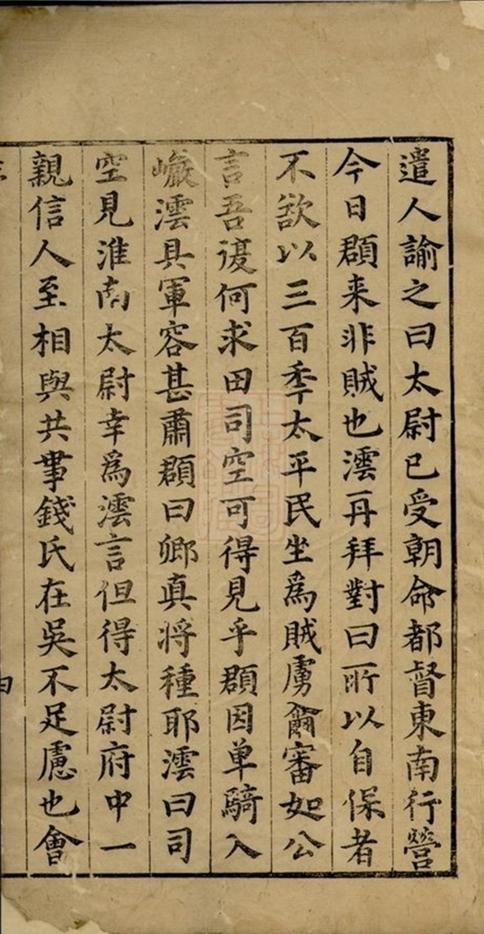 遣人諭之曰太尉已受朝命都督東南行營
今日郡来非賊也澐再拜對曰所以自保者
不欲以三百秊太平民坐爲賊虜爾審如公
言吾復何求田司空可得見乎郡因单騎入
巗澐具軍容甚肅郡曰卿真将種耶澐曰司
空見淮南太尉幸爲澐言但得太尉府中一
親信人至相與共事錢氏在吳不足慮也會